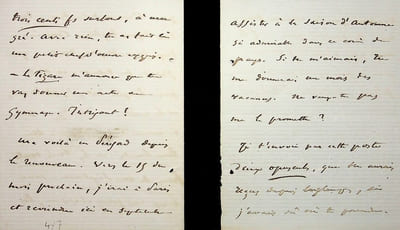 trois cents fs surtout, à mon
gré. Avec rien, tu as fait là
un petit chef d'œuvre
— Le Figaro m'annonce que tu
vas donner un acte au
Gymnase. Intrigant!
Me voilà en depuis
le Vers le 15 du
mois prochain, j'irai à Paris
et reviendrai ici en septembre
assister à la saison d'Automne
si admirable dans ce coin de
pays. Si tu m'aimais, tu
me donnerais un mois des
vacances. Ne veux-tu pas
me le promettre?
Je t'envoie par cette poste
deux opuscules, que tu aurais
reçus depuis longtemps, si
j'avais sû où te prendre.